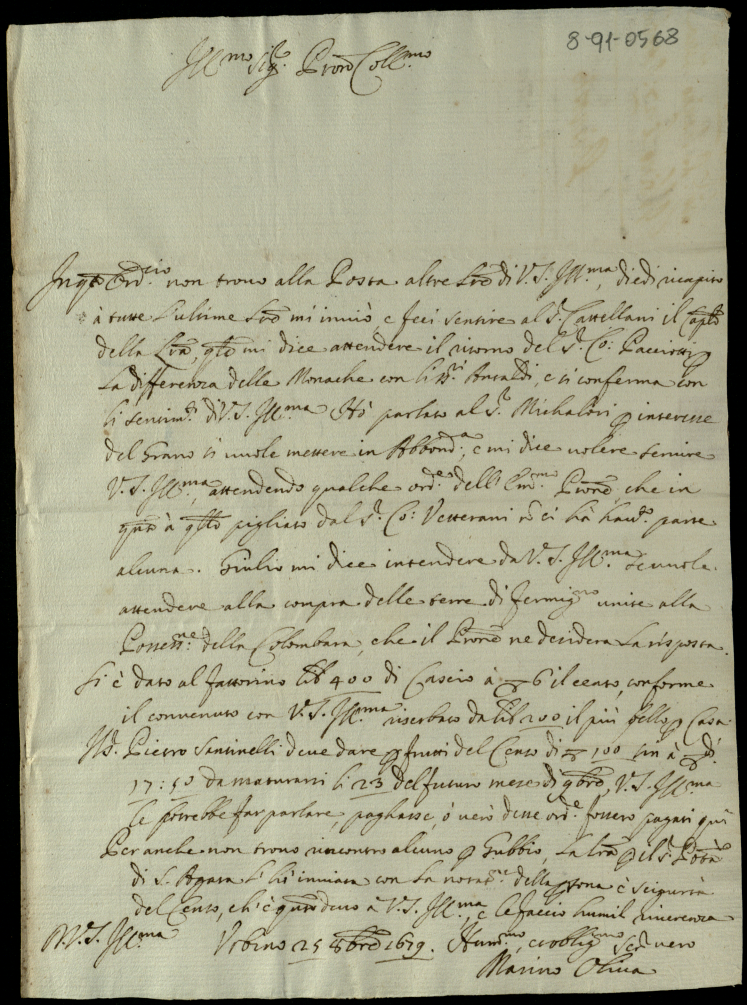 8-91-0568
Ill.mo Sig.r Pron Coll.mo
In q.to Ord.rio non trovo alla Posta altre L're di V.S. Ill.ma, diedi ricapito
à tutte l'ultime L're mi inviò, e feci sentire al S.r Castellani il Cap.lo
della L'ra, q.le mi dice attendere il ritorno del S.r Co: Pacciotti p
la differenza delle Monache con li SS.ri Ansaldi, e si conferma con
li sentim.ti di V.S. Ill.ma Hò parlato al S.r Michalori p interesse
del Grano si vuole mettere in Abbond.a, e mi dice volere servire
V.S. Ill.ma, attendendo qualche ord.e dell' Em.mo Prone, che in
q.nto à q.llo pigliato dal S.r Co: Vetterani nō ci hà hauto parte
alcuna. Giulio mi dice intendere da V.S. Ill.ma se vuole
attendere alla compra delle terre di Fermig.no unite alla
Possess.ne della Colombara, che il Prone ne deciderà la risposta.
Si è dato al fattorino lib 400 di Cascio à 6 il cento, conforme
il convenuto con V.S. Ill.ma riserbato da lib 200 il più bello p Casa
Pietro Santinelli deve dare p frutti del Censo di 100 sin à
17:50 da maturarsi li 23 del futuro mese di 9bre, V.S. Ill.ma
le potrebbe far parlare, pagasse, ò vero desse ord.e fossero pagati quì
Per anche non trovo incontro alcuno p Gubbio, la l'ra p il S.r
di S. Agata li hò inviata con la nota della e sigurtà
del Censo, ch'è q.nto devo à V.S. Ill.ma, e le faccio humil riverenza
D.V.S. Ill.ma Urbino 25 8bre 1679. Hum.mo, et oblig.mo Ser.r vero
Marino Oliva